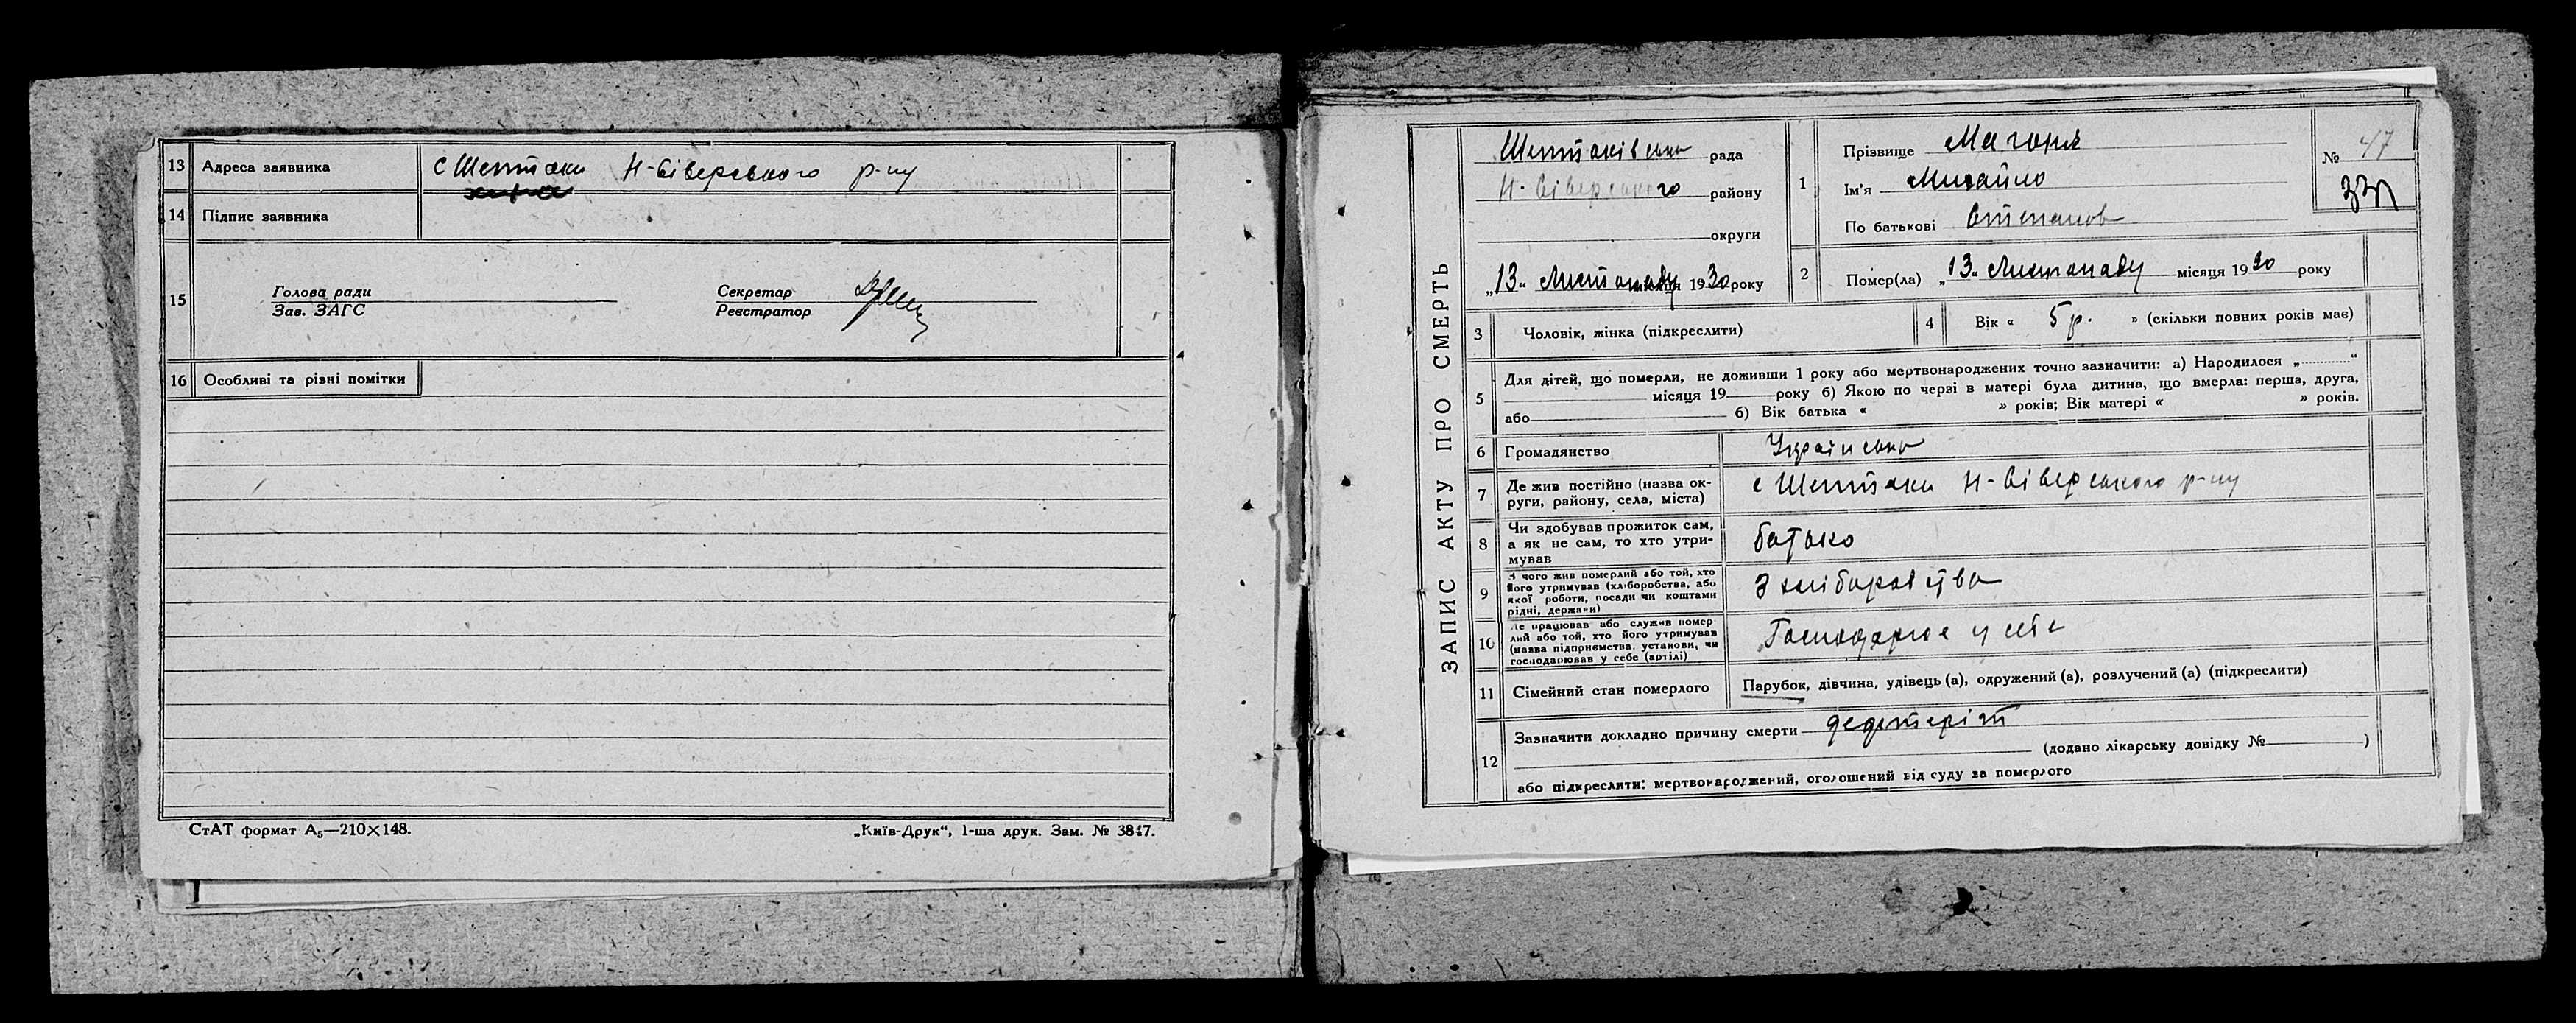 13 Адреса заявника с Шептаки Н-Сіверського р-ну
14 Підпис заявника
15 Голова ради Секретар
Зав. ЗАГС Реєстратор
16 Особливі та різні помітки
СтАТ формат А5—210×148.
„Київ-Друк“, 1-ша друк. Зам. № 3847.
ЗАПИС АКТУ ПРО СМЕРТЬ
Шептаківська рада
Н-Сіверського району
округи
„13“ Листопаду місяця 1930 року
1 Прізвище
Ім'я Михайло
По батькові Степанов
№ 47
2 Помер(ла) „13“ Листопаду місяця 1930 року
3 Чоловік, жінка (підкреслити)
4 Вік « 5 р. » (скільки повних років має)
5 Для дітей, що померли, не доживши 1 року або мертвонароджених точно зазначити: а) Народилося „ “
місяця 19 року б) Якою по черзі в матері була дитина, що вмерла: перша, друга,
або б) Вік батька « » років; Вік матері « » років.
6 Громадянство Українська
7 Де жив постійно (назва ок-
руги, району, села, міста) с Шептаки Н-Сіверського р-ну
8 Чи здобував прожиток сам,
а як не сам, то хто утри-
мував батько
9 З чого жив померлий або той, хто
його утримував (хліборобства, або
якої роботи, посади чи коштами
рідні, держави) З хліборобства
10 Де працював або служив помер
лий або той, хто його утримував
(назва підприємства, установи, чи
господарював у себе (артілі) Господарює у селі
11 Сімейний стан померлого Парубок, дівчина, удівець (а), одружений (а), розлучений (а) (підкреслити)
12 Зазначити докладно причину смерти
(додано лікарську довідку № )
або підкреслити: мертвонароджений, оголошений від суду за померлого